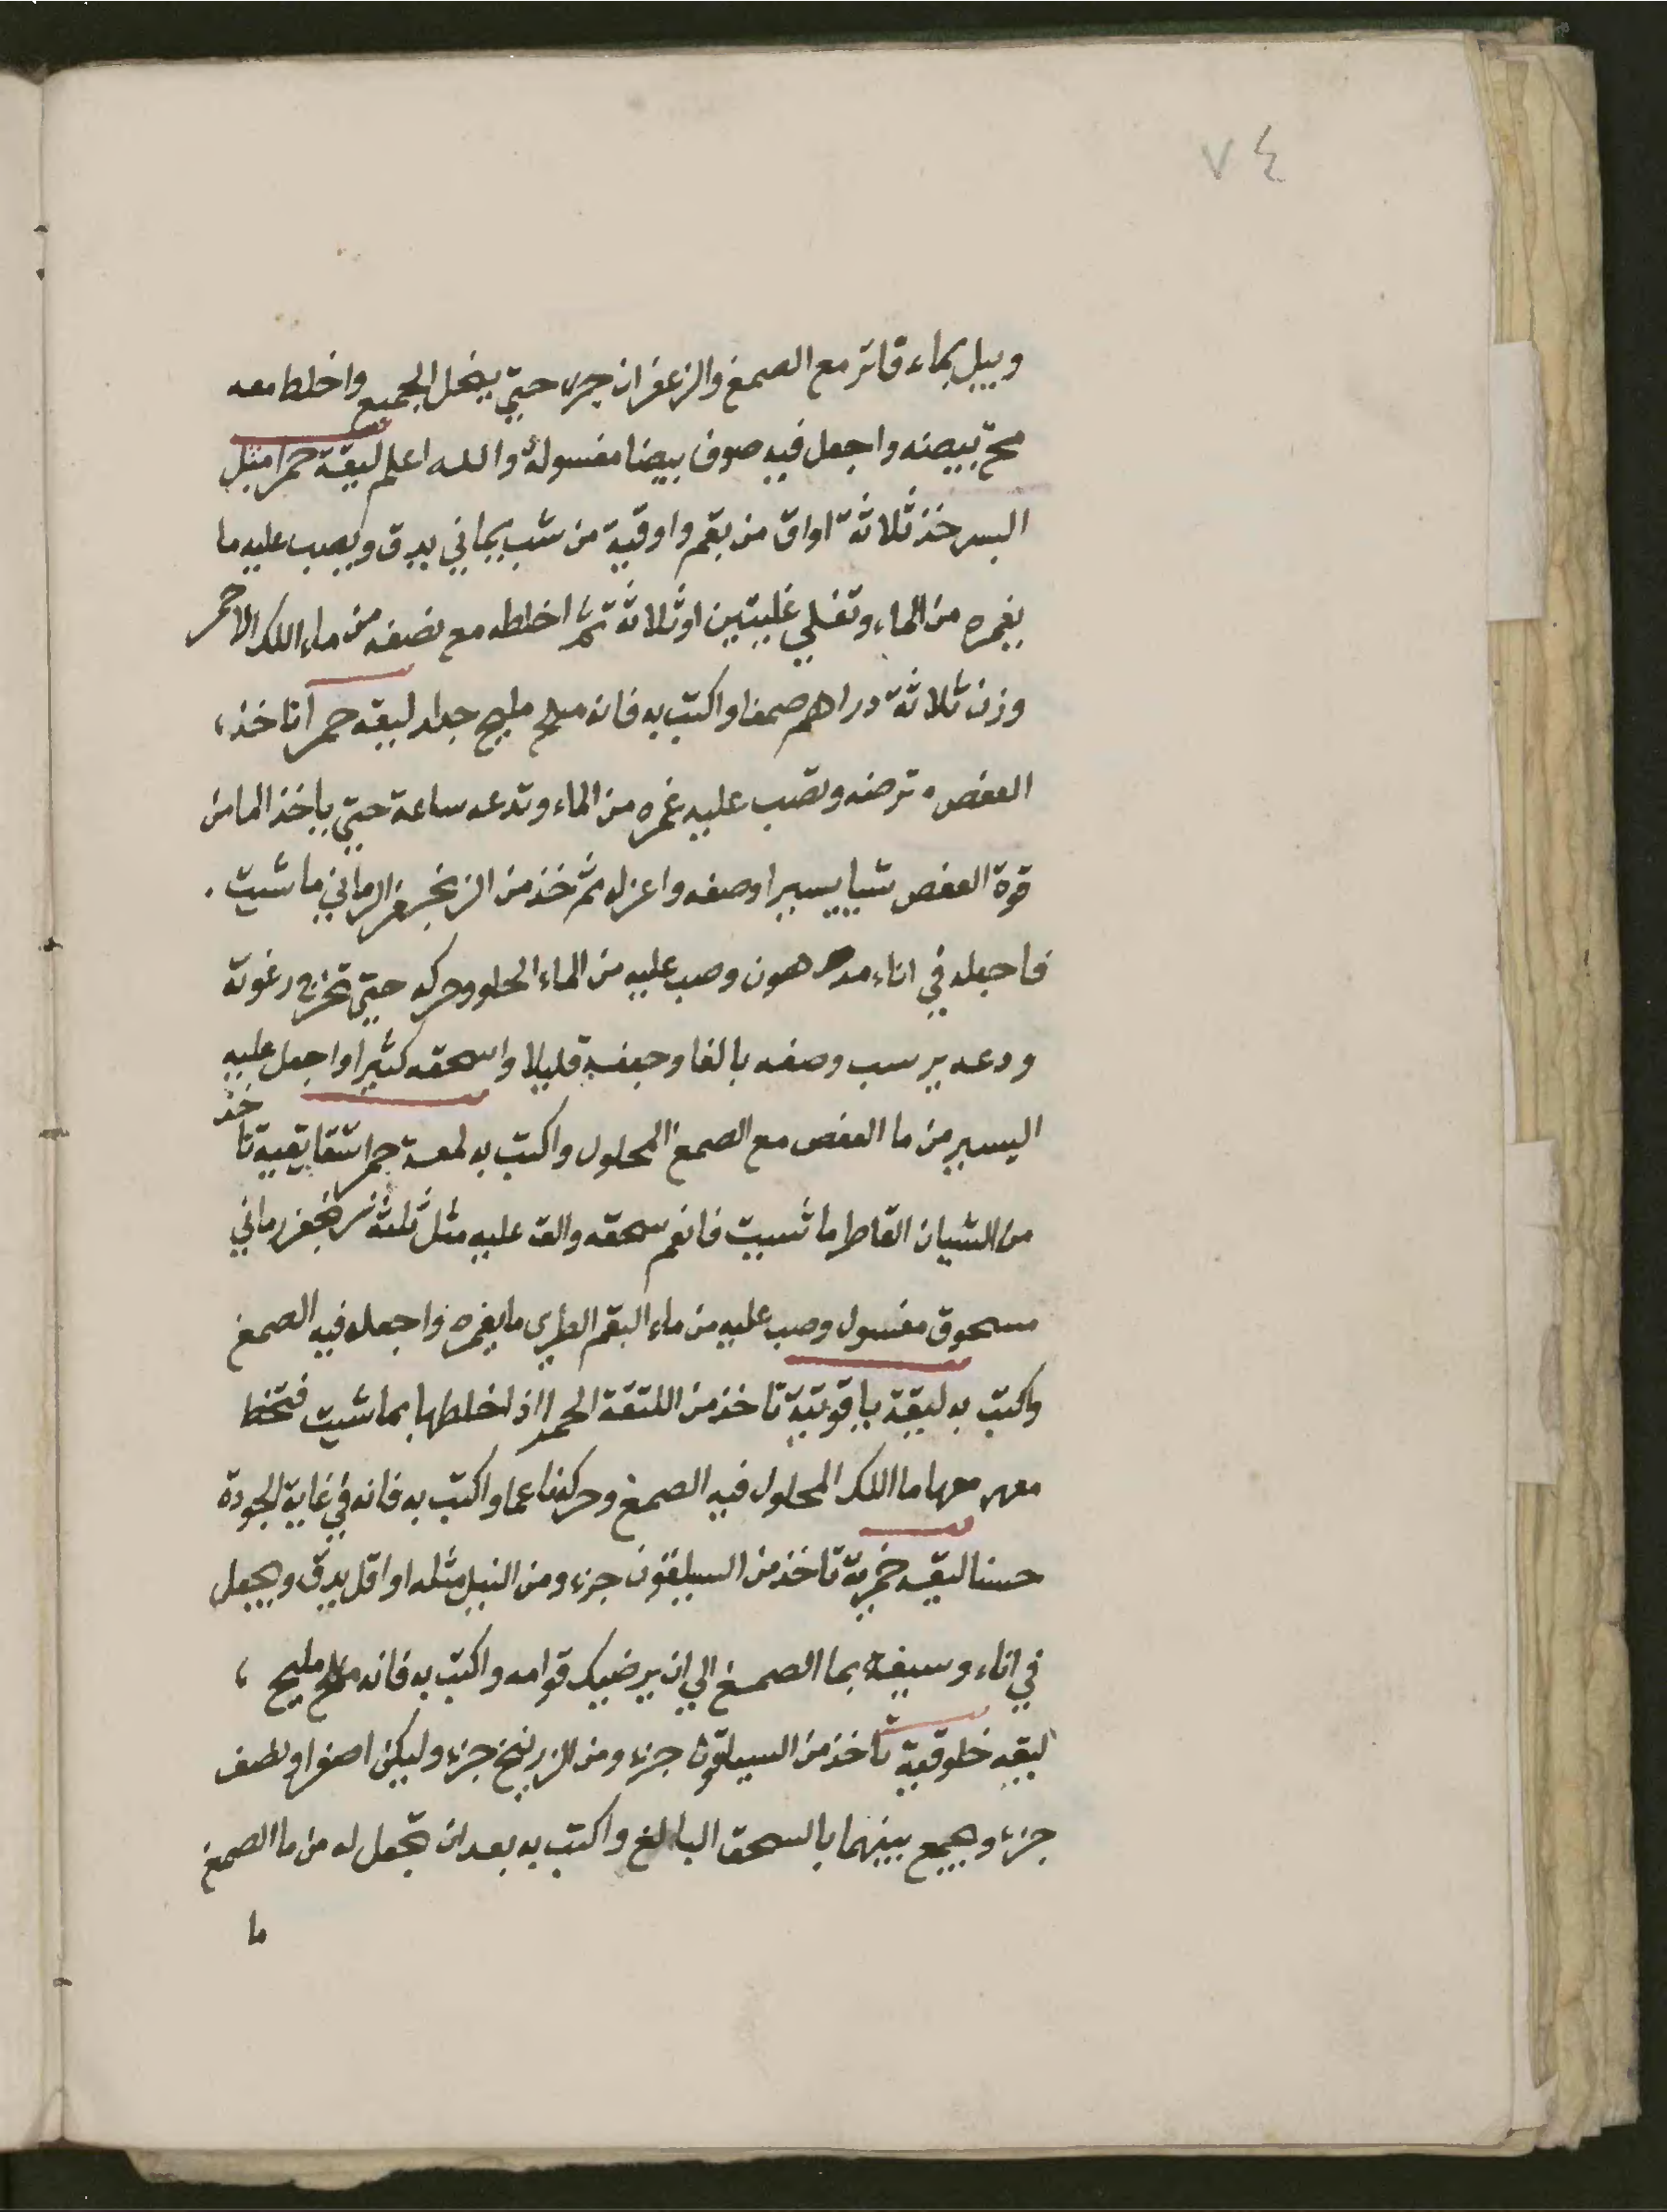 ٧٤
ويبل بماء فاتر مع الصمغ والزعفران جزء حتي ينحل الجميع واخلط معه
مح بيضه واجعل فيه صوف بيضا مغسولة والله اعلم ليقة حمرا مثل
البسر خذ ثلاثة اواق من بقم واوقية من شب يماني يدق ويصب عليه ما
يغمره من الماء وتغلي غليتين او ثلاثة ثم اخلطه مع نصفه من ماء اللك الاحمر
وزن ثلاثة دراهم صمغا واكتب به فانه مليح جدا ليقه حمرا تاخذ
العفص ترضه وتصب عليه غمره من الماء وتدعه ساعة حتي ياخذ الما من
قوة العفص شيا يسيرا وصفه واعزله ثم خذ من الزنجفر الرماني ما شيت .
فاجعله في اناء مدهون وصب عليه من الماء الحلو وحركه حتي تخرج رغوته
ودعه يرسب وصفه بالغا وجففه قليلا واسحقه كثيرا واجعل عليه
اليسير من ما العفص مع الصمغ المحلول واكتب به لمعة حمرا شقايقية تاخذ
من الشيان القاطر ما شيت فانعم سحقه والق عليه مثل ثلثه زنجفر رماني
مسحوق مغسول وصب عليه من ماء البقم الطري ما يغمره واجعله فيه الصمغ
واكتب به ليقة ياقوتية تاخذ من اللتقة الحمرا اذا خلطها بما شيت فتخلط
معهر معها ما اللك المحلول فيه الصمغ وحركه ناعما واكتب به فانه في غاية الجودة
حسنا ليقه خمرية تاخذ من السيلقون جزء ومن النيل مثله او اقل يدق ويجعل
في اناء وسيغه بما الصمغ الي ان يرضيك قوامه واكتب به فانه مليح
ليقه خلوقية تاخذ من السيلقون جزء ومن الزرنيخ جزء وليكن اصفرا ونصف
جزء ويجمع بينهما بالسحق البالغ واكتب به بعد ان تجعل له من ما الصمغ
ما